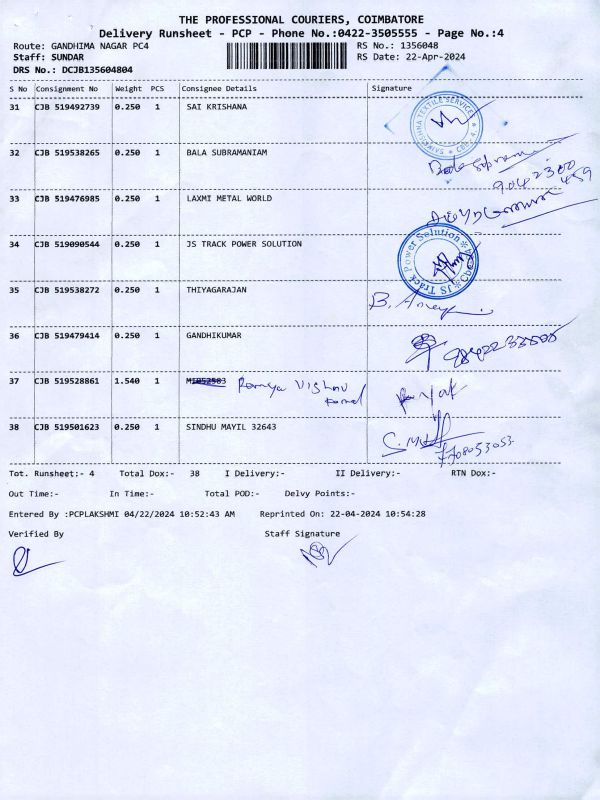 THE PROFESSIONAL COURIERS, COIMBATORE
Delivery Runsheet - PCP - Phone No.:0422-3505555 - Page No.:4
Route: GANDHIMA NAGAR PC4 RS No.: 1356048
Staff: SUNDAR RS Date: 22-Apr-2024
DRS No.: DCJB135604804
S No Consignment No Weight PCS Consignee Details Signature
31 CJB 519492739 0.250 1 SAI KRISHANA
32 CJB 519538265 0.250 1 BALA SUBRAMANIAM
33 CJB 519476985 0.250 1 LAXMI METAL WORLD
34 CJB 519090544 0.250 1 JS TRACK POWER SOLUTION
JS Track Power Solution
35 CJB 519538272 0.250 1 THIYAGARAJAN
36 CJB 519479414 0.250 1 GANDHIKUMAR
37 CJB 519528861 1.540 1 Ramya Vishnu
38 CJB 519501623 0.250 1 SINDHU MAYIL 32643
7708053053
Tot. Runsheet:- 4 Total Dox:- 38 I Delivery:- II Delivery:- RTN Dox:-
Out Time:- In Time:- Total POD:- Delvy Points:-
Entered By :PCPLAKSHMI 04/22/2024 10:52:43 AM Reprinted On: 22-04-2024 10:54:28
Verified By Staff Signature